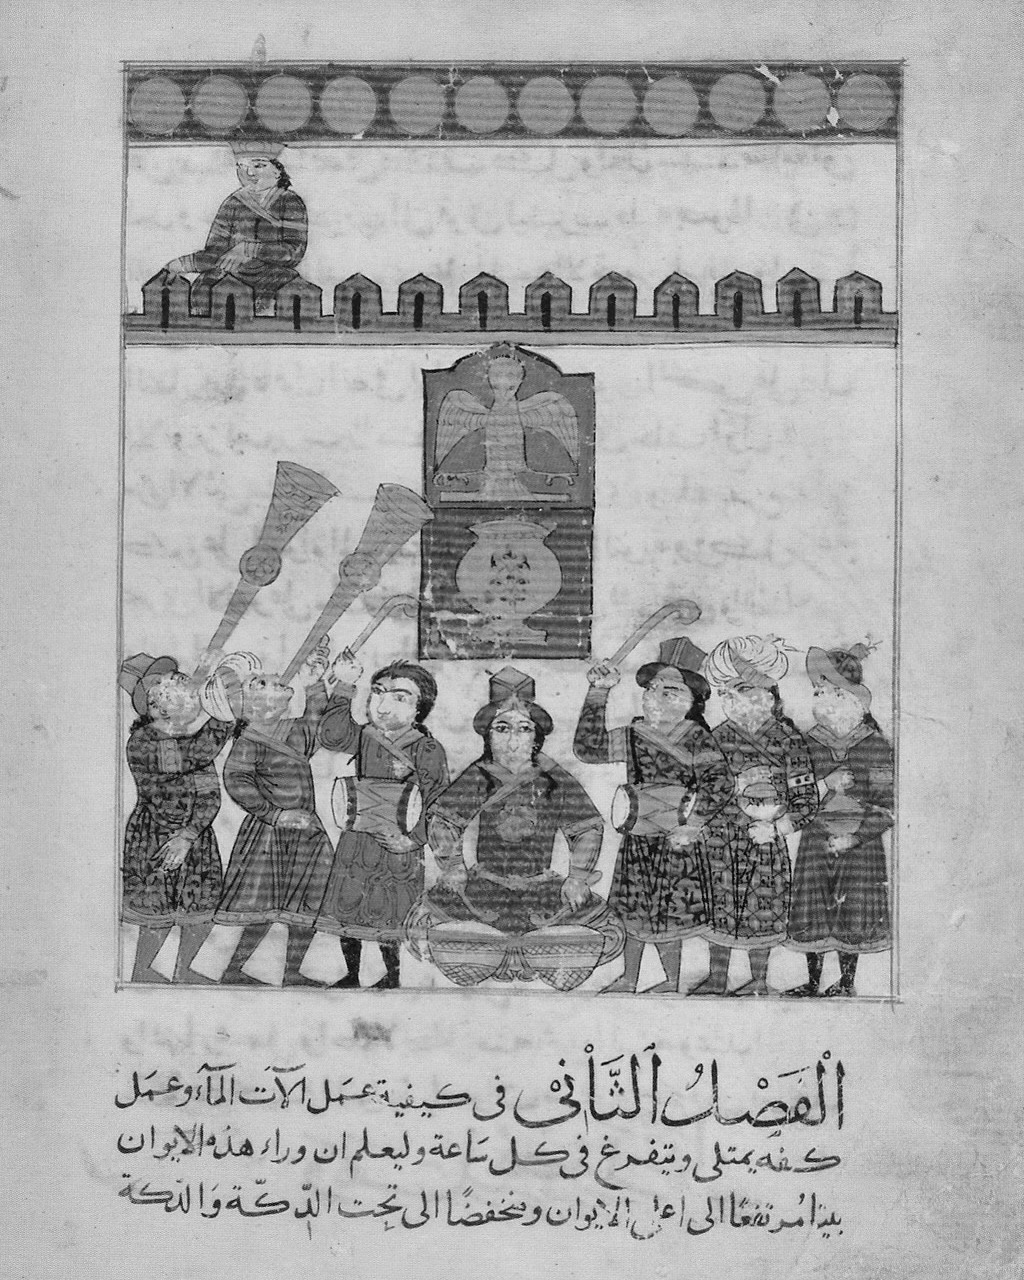 الْفَصْلُ الثَّانِى فى كيفية عمَل الآت المآء وعمَل
كفه يمتلى ويتفرغ فى كل سَاعة وليعلم ان وراء هذه الايوان
بيتا مُرتفعًا الى اعلى الايوان ومنخفضًا الى تحت الدّكّة وَالدّكة